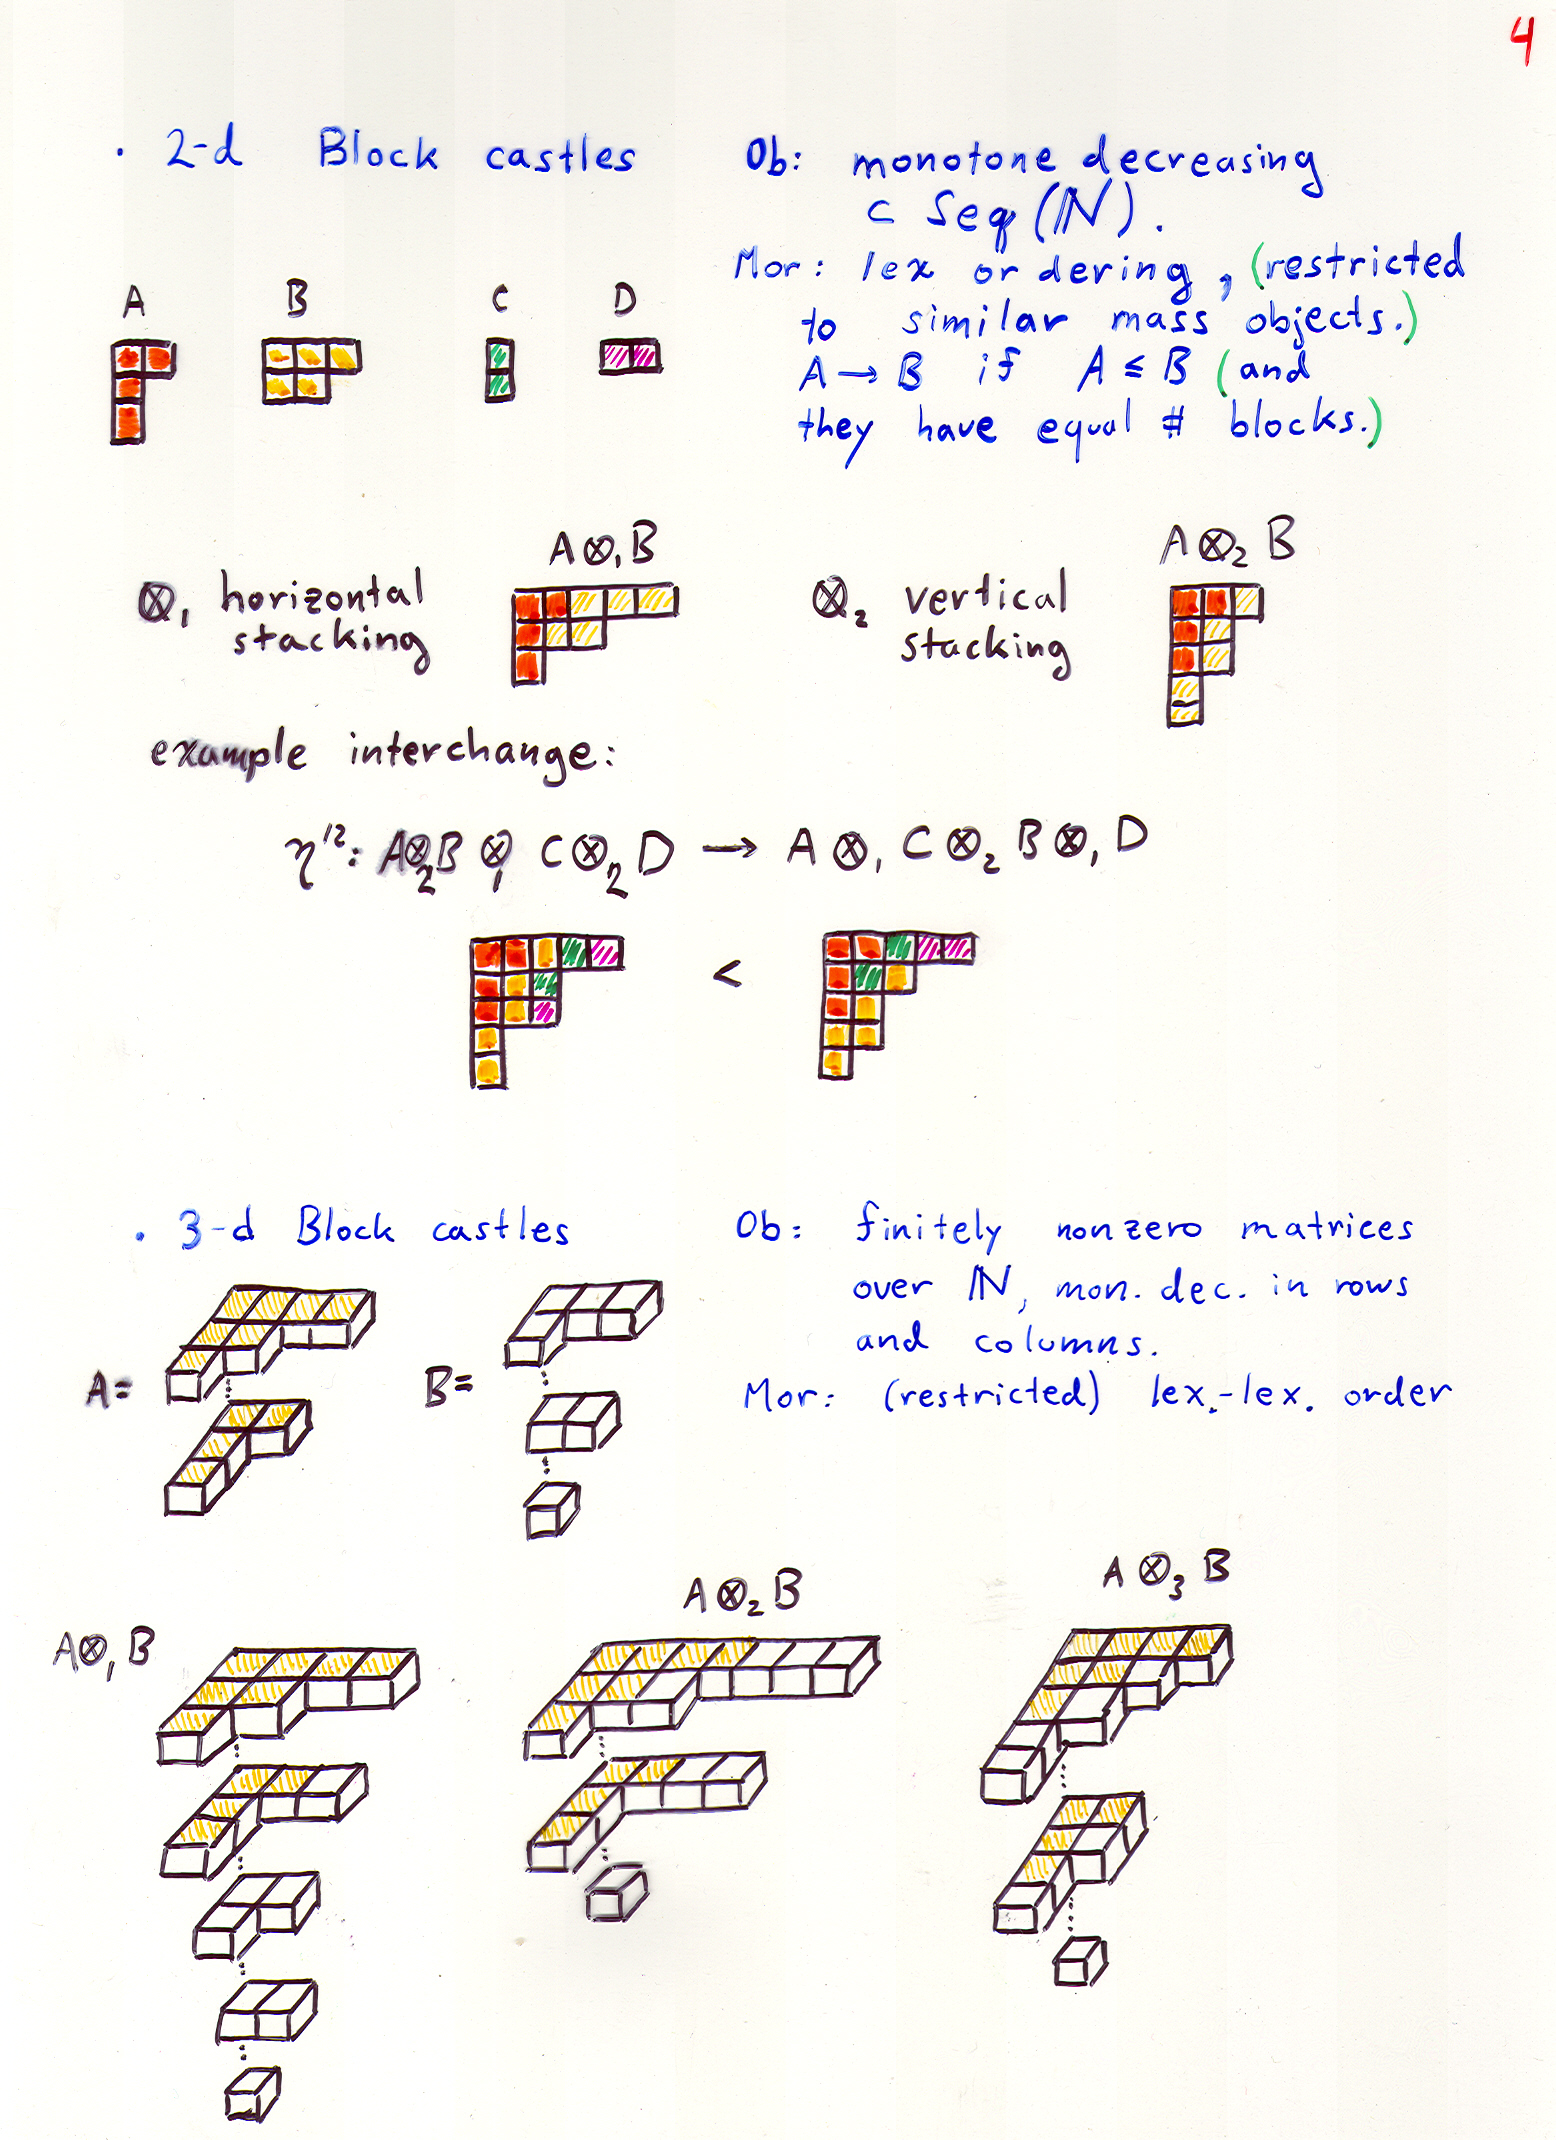 4
· 2-d Block castles
Ob: monotone decreasing
⊂ Seq(ℕ).
Mor: lex ordering, (restricted
to similar mass objects.)
A → B if A ≤ B (and
they have equal # blocks.)
A B C D
A⊗₁B
A⊗₂B
⊗₁ horizontal
stacking
⊗₂ vertical
stacking
example interchange:
η¹²: A⊗₂B ⊗₁ C⊗₂D → A⊗₁C⊗₂B⊗₁D
<
· 3-d Block castles
Ob: finitely nonzero matrices
over ℕ, mon. dec. in rows
and columns.
Mor: (restricted) lex.-lex. order
A=
B=
A⊗₁B
A⊗₂B
A⊗₃B